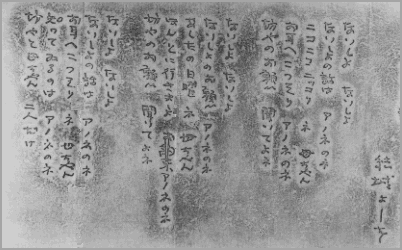 結城よしを
ないしよ ないしよ
ないしよの話は アノネのネ
ニコニコニッコリ ネ 母ちやん
お耳へこつそり アノネのネ
坊やのお願ヒ 聞いてよネ
ないしよ ないしよ
ないしよのお願ヒ アノネのネ
あしたの日曜 ネ 母ちやん
ほんとに アノネのネ
坊やのお願ヒ 聞いてよネ
ないしよ ないしよ
ないしよの話は アノネのネ
お耳へこつそり ネ 母ちやん
知つてゐるのは アノネのネ
坊やと母ちやん 二人だけ